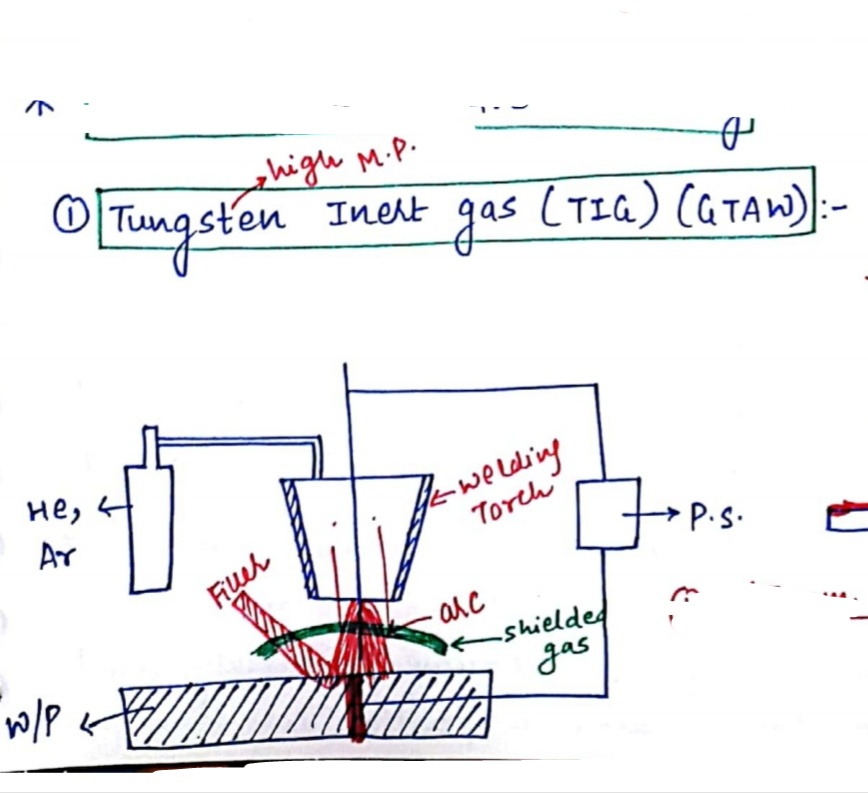 high M.P.
① Tungsten Inert gas (TIG) (GTAW) :-
He,
Ar
welding
Torch
P.s.
Filler
arc
shielded
gas
W/P